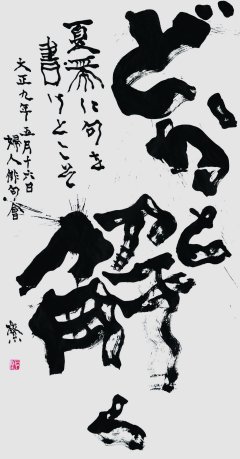 どかと解く
夏帯に句を
書けとこそ
大正九年五月十六日
婦人俳句會